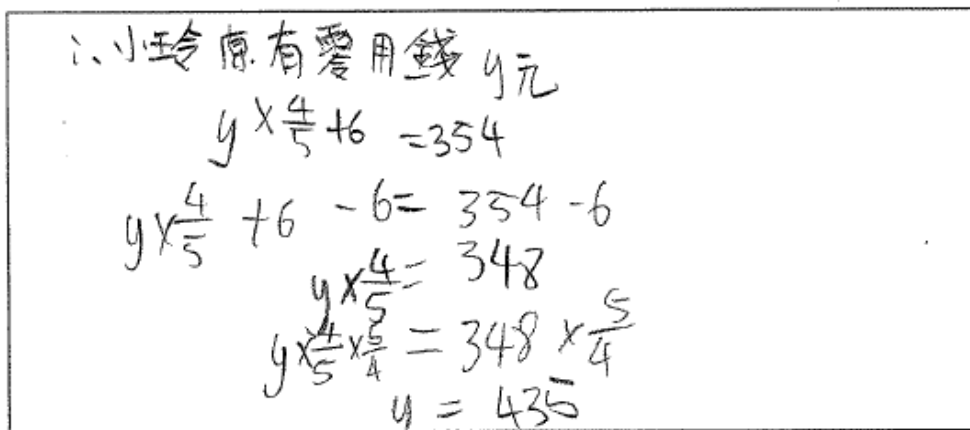 ∴小玲原有零用錢 y元
y × 4/5 + 6 = 354
y × 4/5 + 6 - 6 = 354 - 6
y × 4/5 = 348
y × 4/5 × 5/4 = 348 × 5/4
y = 435